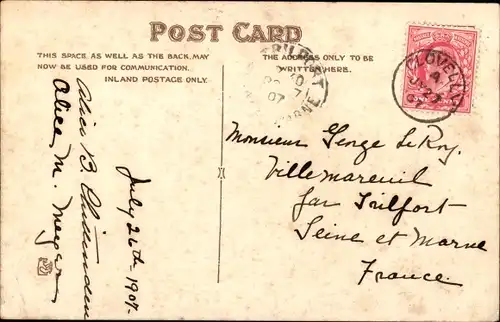 POST CARD
THIS SPACE, AS WELL AS THE BACK, MAY
NOW BE USED FOR COMMUNICATION.
INLAND POSTAGE ONLY.
THE ADDRESS ONLY TO BE
WRITTEN HERE.
CLOVELLY
TRILPORT
07
MARNE
Monsieur George Le Roy.
Villemareuil
par Trilport
Seine et Marne
France.
July 26th 1907.
Alice B. Chittenden
Alice M. Meyer